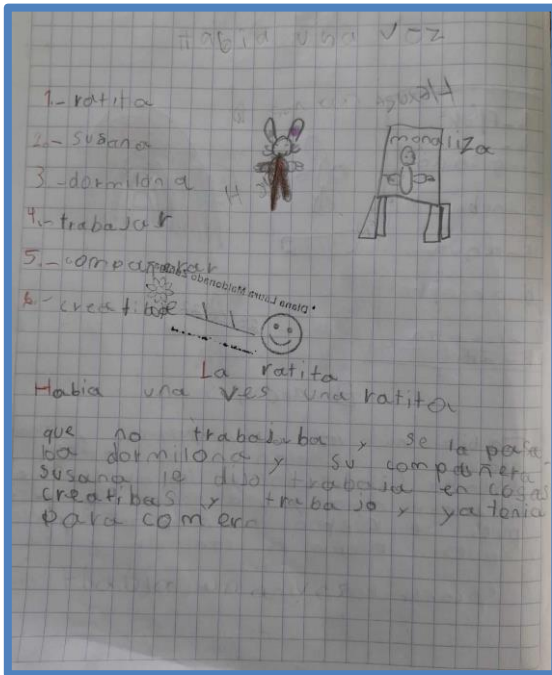 Habia una vez
1.- ratita
2.- susana
monaliza
3.-dormilona
4.-trabajar
5.-compañerar
Diana Laura Maldonado
6.- creatibe
La ratita
Habia una ves una ratita
que no trabajaba y se la pasa-
ba dormilona y su compañera
susana le dijo trabaja en cosas
creatibas y trabajo y ya tenia
para comer